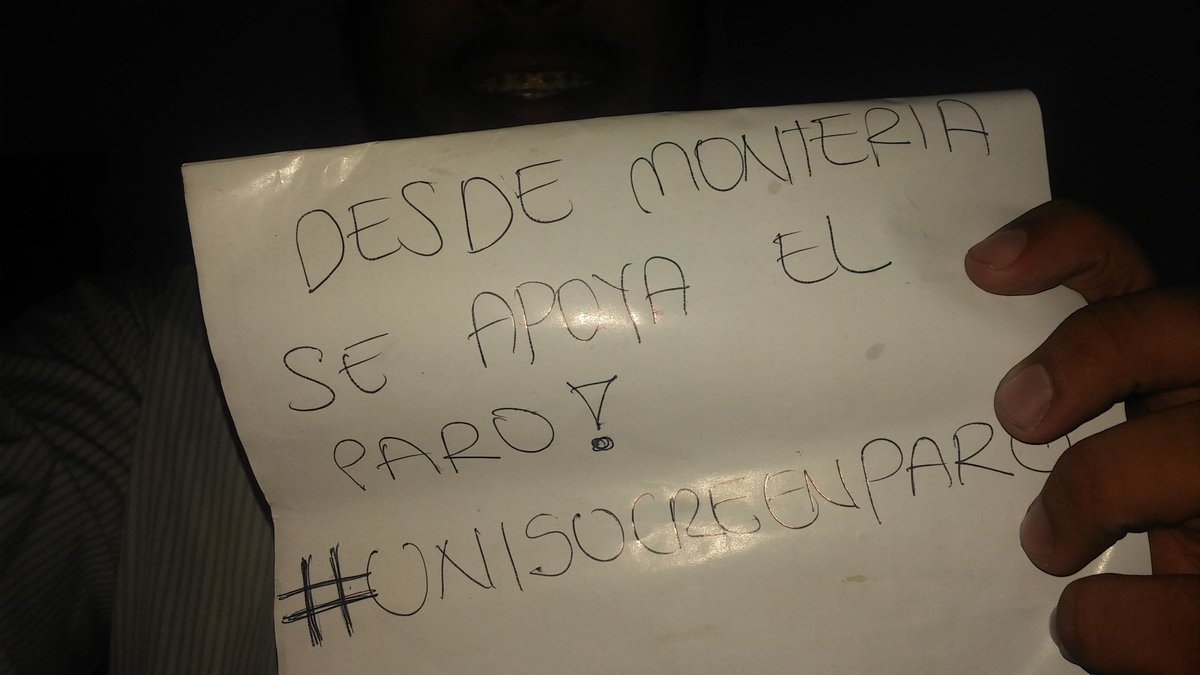 DESDE MONTERIA
SE APOYA EL
PARO!
#UNISUCREENPARO